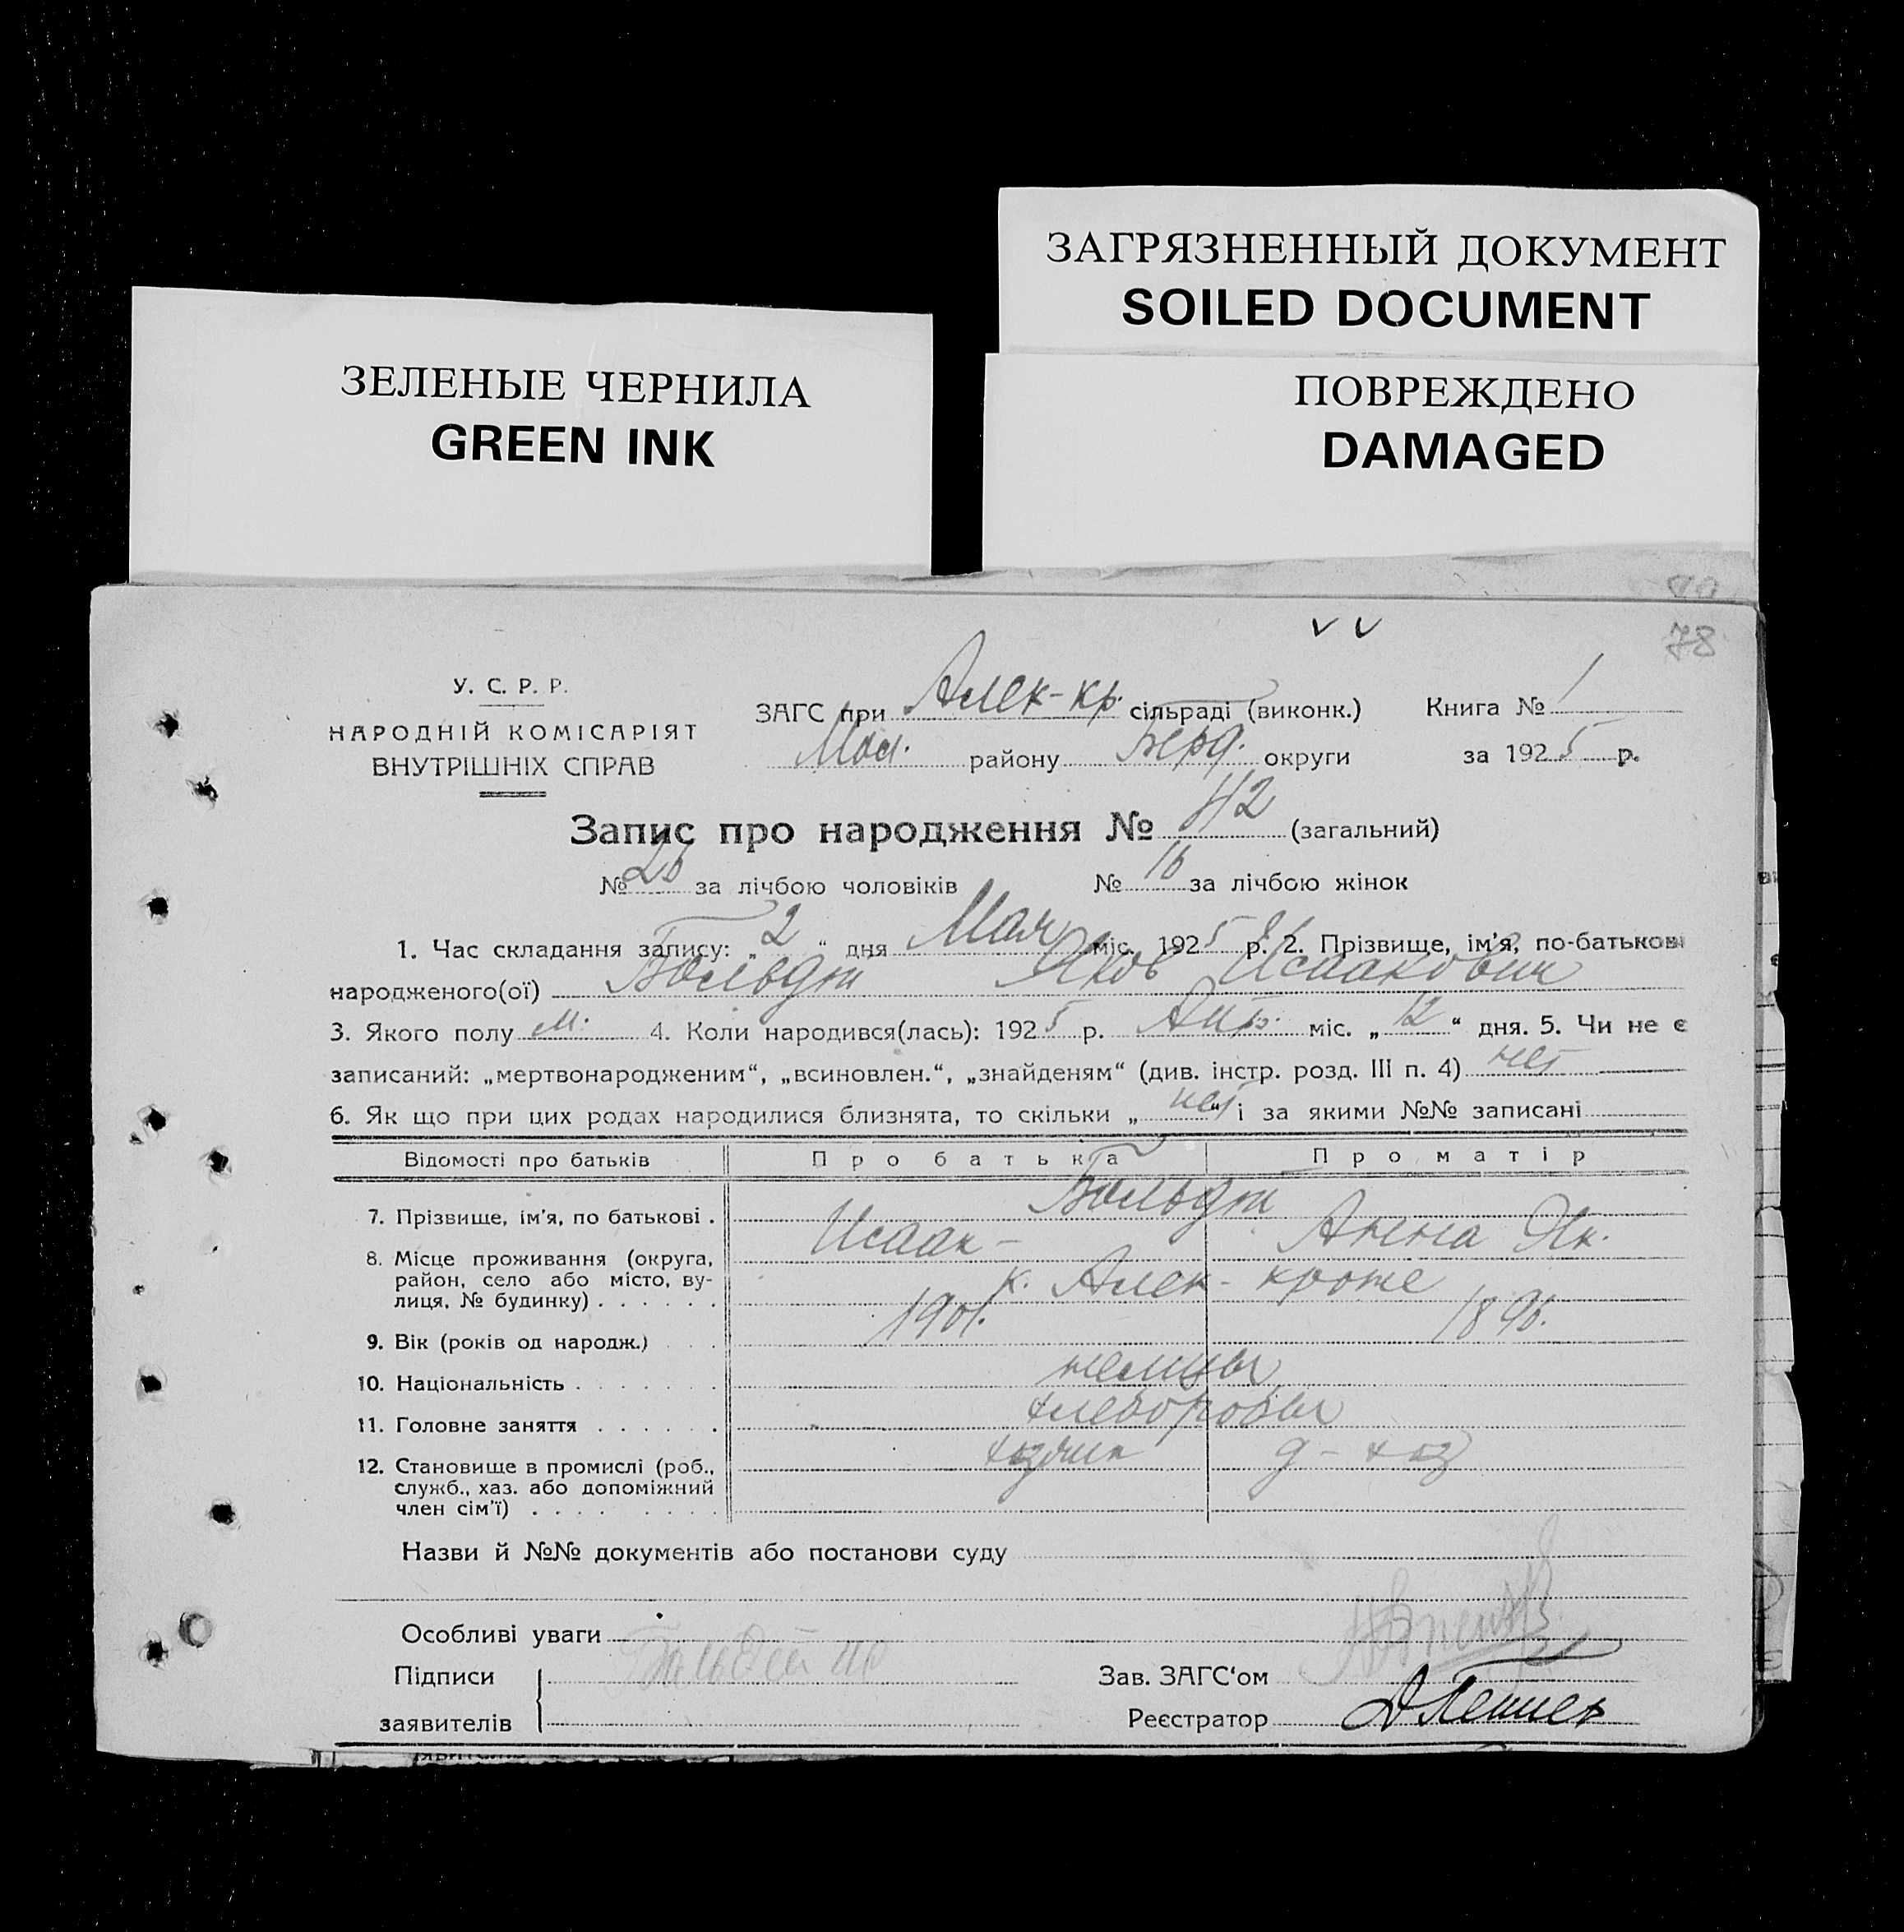 ЗАГРЯЗНЕННЫЙ ДОКУМЕНТ
SOILED DOCUMENT
ЗЕЛЕНЫЕ ЧЕРНИЛА
GREEN INK
ПОВРЕЖДЕНО
DAMAGED
78
У. С. Р. Р.
НАРОДНІЙ КОМІСАРІЯТ
ВНУТРІШНІХ СПРАВ
ЗАГС при Алек-кр. сільраді (виконк.) Книга № 1
Мол. району Берд. округи за 1925 р.
Запис про народження № 42 (загальний)
№ 26 за лічбою чоловіків № 16 за лічбою жінок
1. Час складання запису: „ 2 “ дня Мая міс. 1925 р. 2. Прізвище, ім'я, по-батькові
народженого(ої) Больдт Яков Исаакович
3. Якого полу м. 4. Коли народився(лась): 1925 р. Апр. міс. „ 12 “ дня. 5. Чи не є
записаний: „мертвонародженим“, „всиновлен.“, „знайденям“ (див. інстр. розд. III п. 4) нет
6. Як що при цих родах народилися близнята, то скільки „ нет “ і за якими №№ записані
Відомості про батьків Про батька Про матір
Больдт
7. Прізвище, ім'я, по батькові . Исаак - Анна Як.
8. Місце проживання (округа, район, село або місто, вулиця, № будинку) . . . . . . к. Алек-кроне
9. Вік (років од народж.) . . . 1901. 1896.
10. Національність . . . . . . . немцы
11. Головне заняття . . . . . . хлеборобы
12. Становище в промислі (роб., служб., хаз. або допоміжний член сім'ї) . . . . . . . . хозяин д-хоз
Назви й №№ документів або постанови суду
Особливі уваги
Підписи Зав. ЗАГС'ом
заявителів Реєстратор